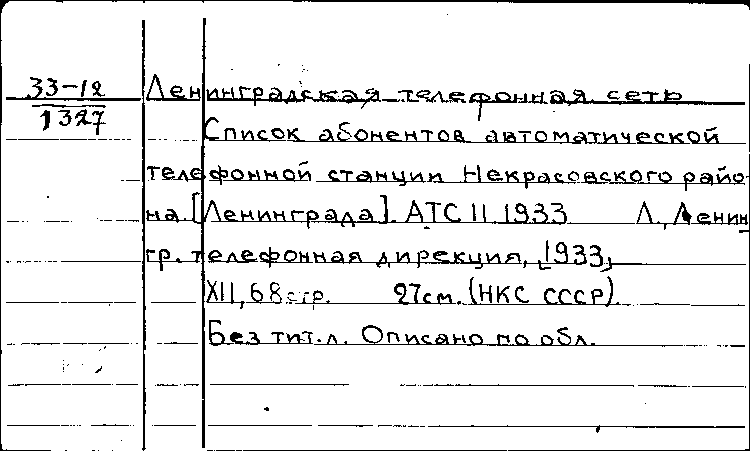 33-12
1327
Ленинградская телефонная сеть
Список абонентов автоматической
телефонной станции Некрасовского райо-
на [Ленинграда]. АТС II 1933 Л., Ленин
гр. телефонная дирекция, [1933]
XII, 68 стр. 27 см. (НКС СССР).
Без тит. л. Описано по обл.